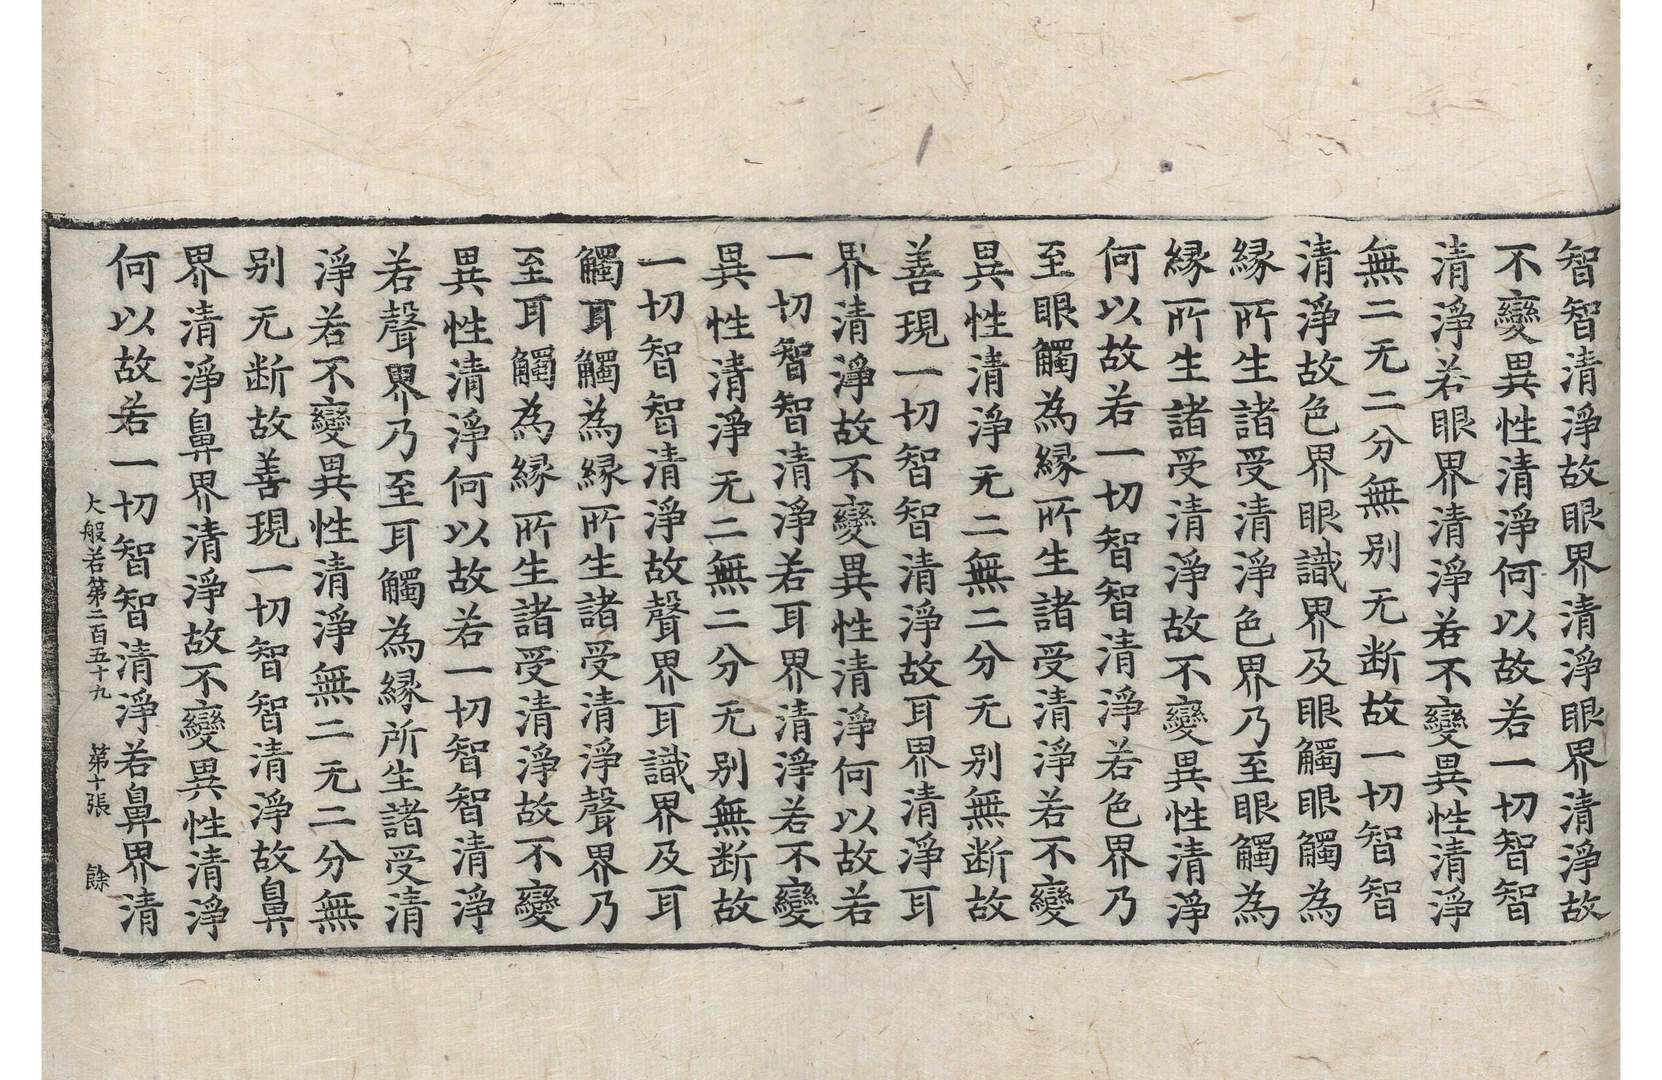 智智清淨故眼界清淨眼界清淨故
不變異性清淨何以故若一切智智
清淨若眼界清淨若不變異性清淨
無二无二分無别无断故一切智智
清淨故色界眼識界及眼觸眼觸為
縁所生諸受清淨色界乃至眼觸為
縁所生諸受清淨故不變異性清淨
何以故若一切智智清淨若色界乃
至眼觸為縁所生諸受清淨若不變
異性清淨无二無二分无别無断故
善現一切智智清淨故耳界清淨耳
界清淨故不變異性清淨何以故若
一切智智清淨若耳界清淨若不變
異性清淨无二無二分无别無断故
一切智智清淨故聲界耳識界及耳
觸耳觸為縁所生諸受清淨聲界乃
至耳觸為縁所生諸受清淨故不變
異性清淨何以故若一切智智清淨
若聲界乃至耳觸為縁所生諸受清
淨若不變異性清淨無二无二分無
别无断故善現一切智智清淨故鼻
界清淨鼻界清淨故不變異性清淨
何以故若一切智智清淨若鼻界清
大般若第二百五十九 第十張 餘